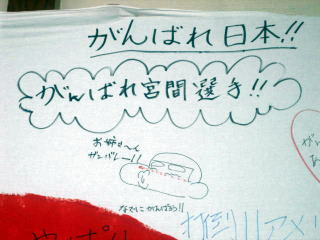 がんばれ日本!!
がんばれ宮間選手!!
お姉さ〜ん
ガンバレー!!
なでしこがんばろう!!
打倒!!アメリ
やっぱり